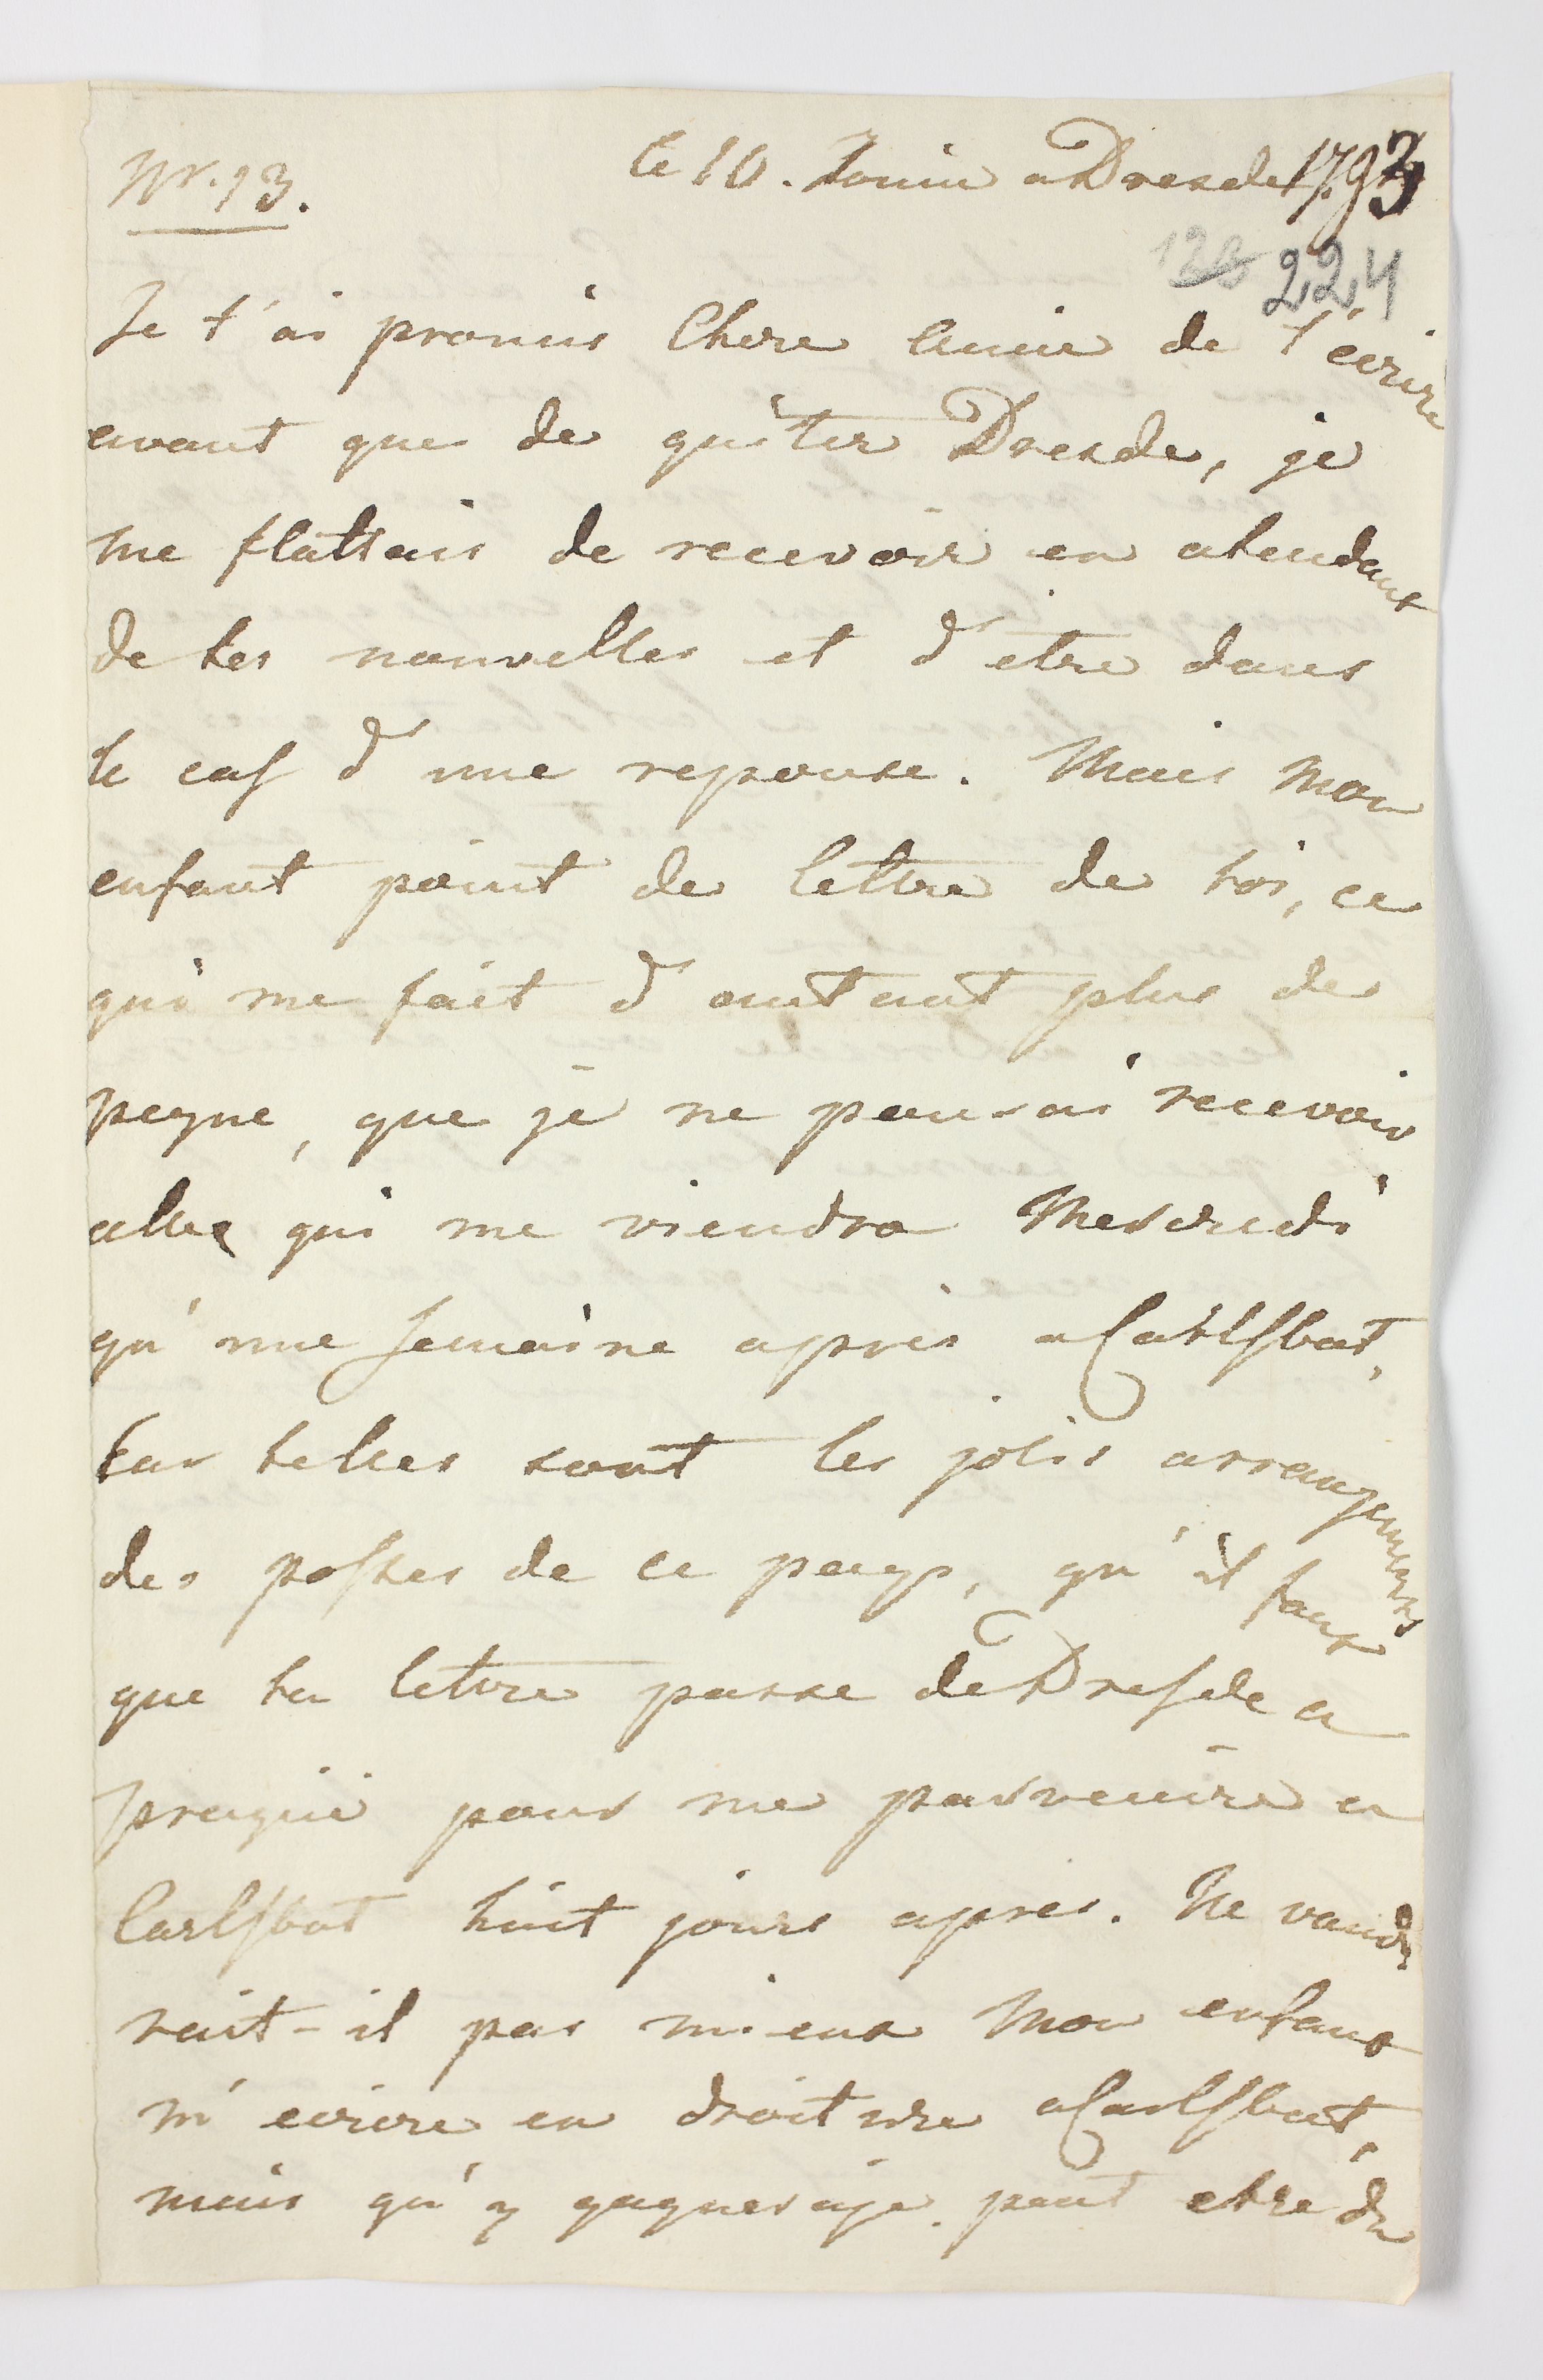 Nr. 13.
le 10. Jouin a Dresde 1793
128 224
Je t'ai promis Chere Amie de t'ecrire
avant que de quiter Dresde, je
me flattais de recevoir en atendant
de tes nouvelles et d'etre dans
le cas d'une reponse. Mais mon
enfant point de lettre de toi, ce
qui me fait d'autant plus de
peyne, que je ne pourai recevoir
celle qui me viendra Mercredi
qu'une semaine apres a Carlsbat,
car telles sont les jolis arrangements
des postes de ce pays, qu'il faut
que ta lettre passe de Dresde a
prague pour me parvenire a
Carlsbat huit jours apres. Ne vaud
rait-il pas mieux mon enfant
m'ecrire en droiture a Carlsbat,
mais qu'y gagneraije. peut etre du